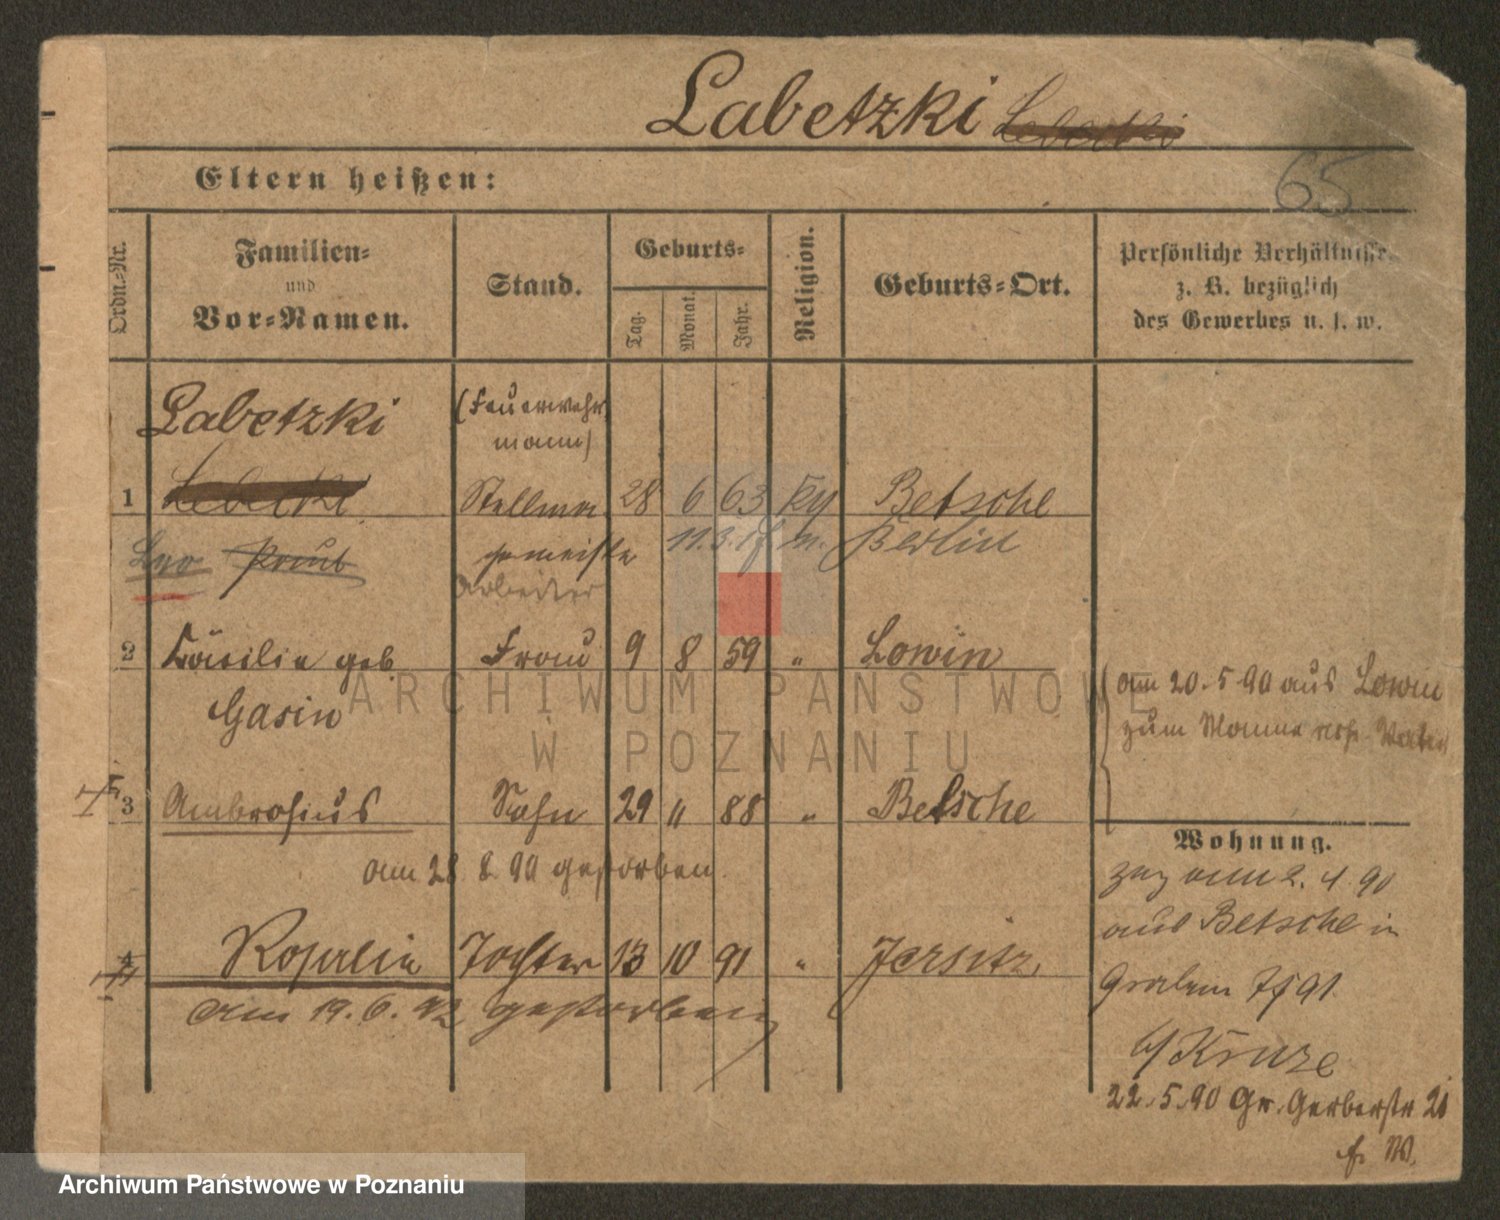 Labetzki Lebetki
65
Eltern heißen:
Ordn.-Nr.
Familien-
und
Vor-Namen.
Stand.
Geburts-
Tag.
Monat.
Jahr.
Religion.
Geburts-Ort.
Persönliche Verhältnisse
z. B. bezüglich
des Gewerbes u. s. w.
Labetzki
(Feuerwehr
mann)
1 Stellma 28 6 63 Betsche
Leo 11.3. Berlin
Arbeiter
2 Cäcilie geb. Frau 9 8 59 " Lowin
Gasin
am 20.5.90 aus Lowin
zum Manne
3 Ambrosius Sohn 29 " 88 " Betsche
am 28.8.90 gestorben.
Wohnung.
zug am 2.4.90
aus Betsche in
4 Rosalie Tochter 13 10 91 " Jersitz
Graben 7 f 91.
am 19.6.92 gestorben
b/ Kruze
22.5.90 Gr. Gerberstr 21
f. W.
ARCHIWUM PAŃSTWOWE
W POZNANIU
Archiwum Państwowe w Poznaniu